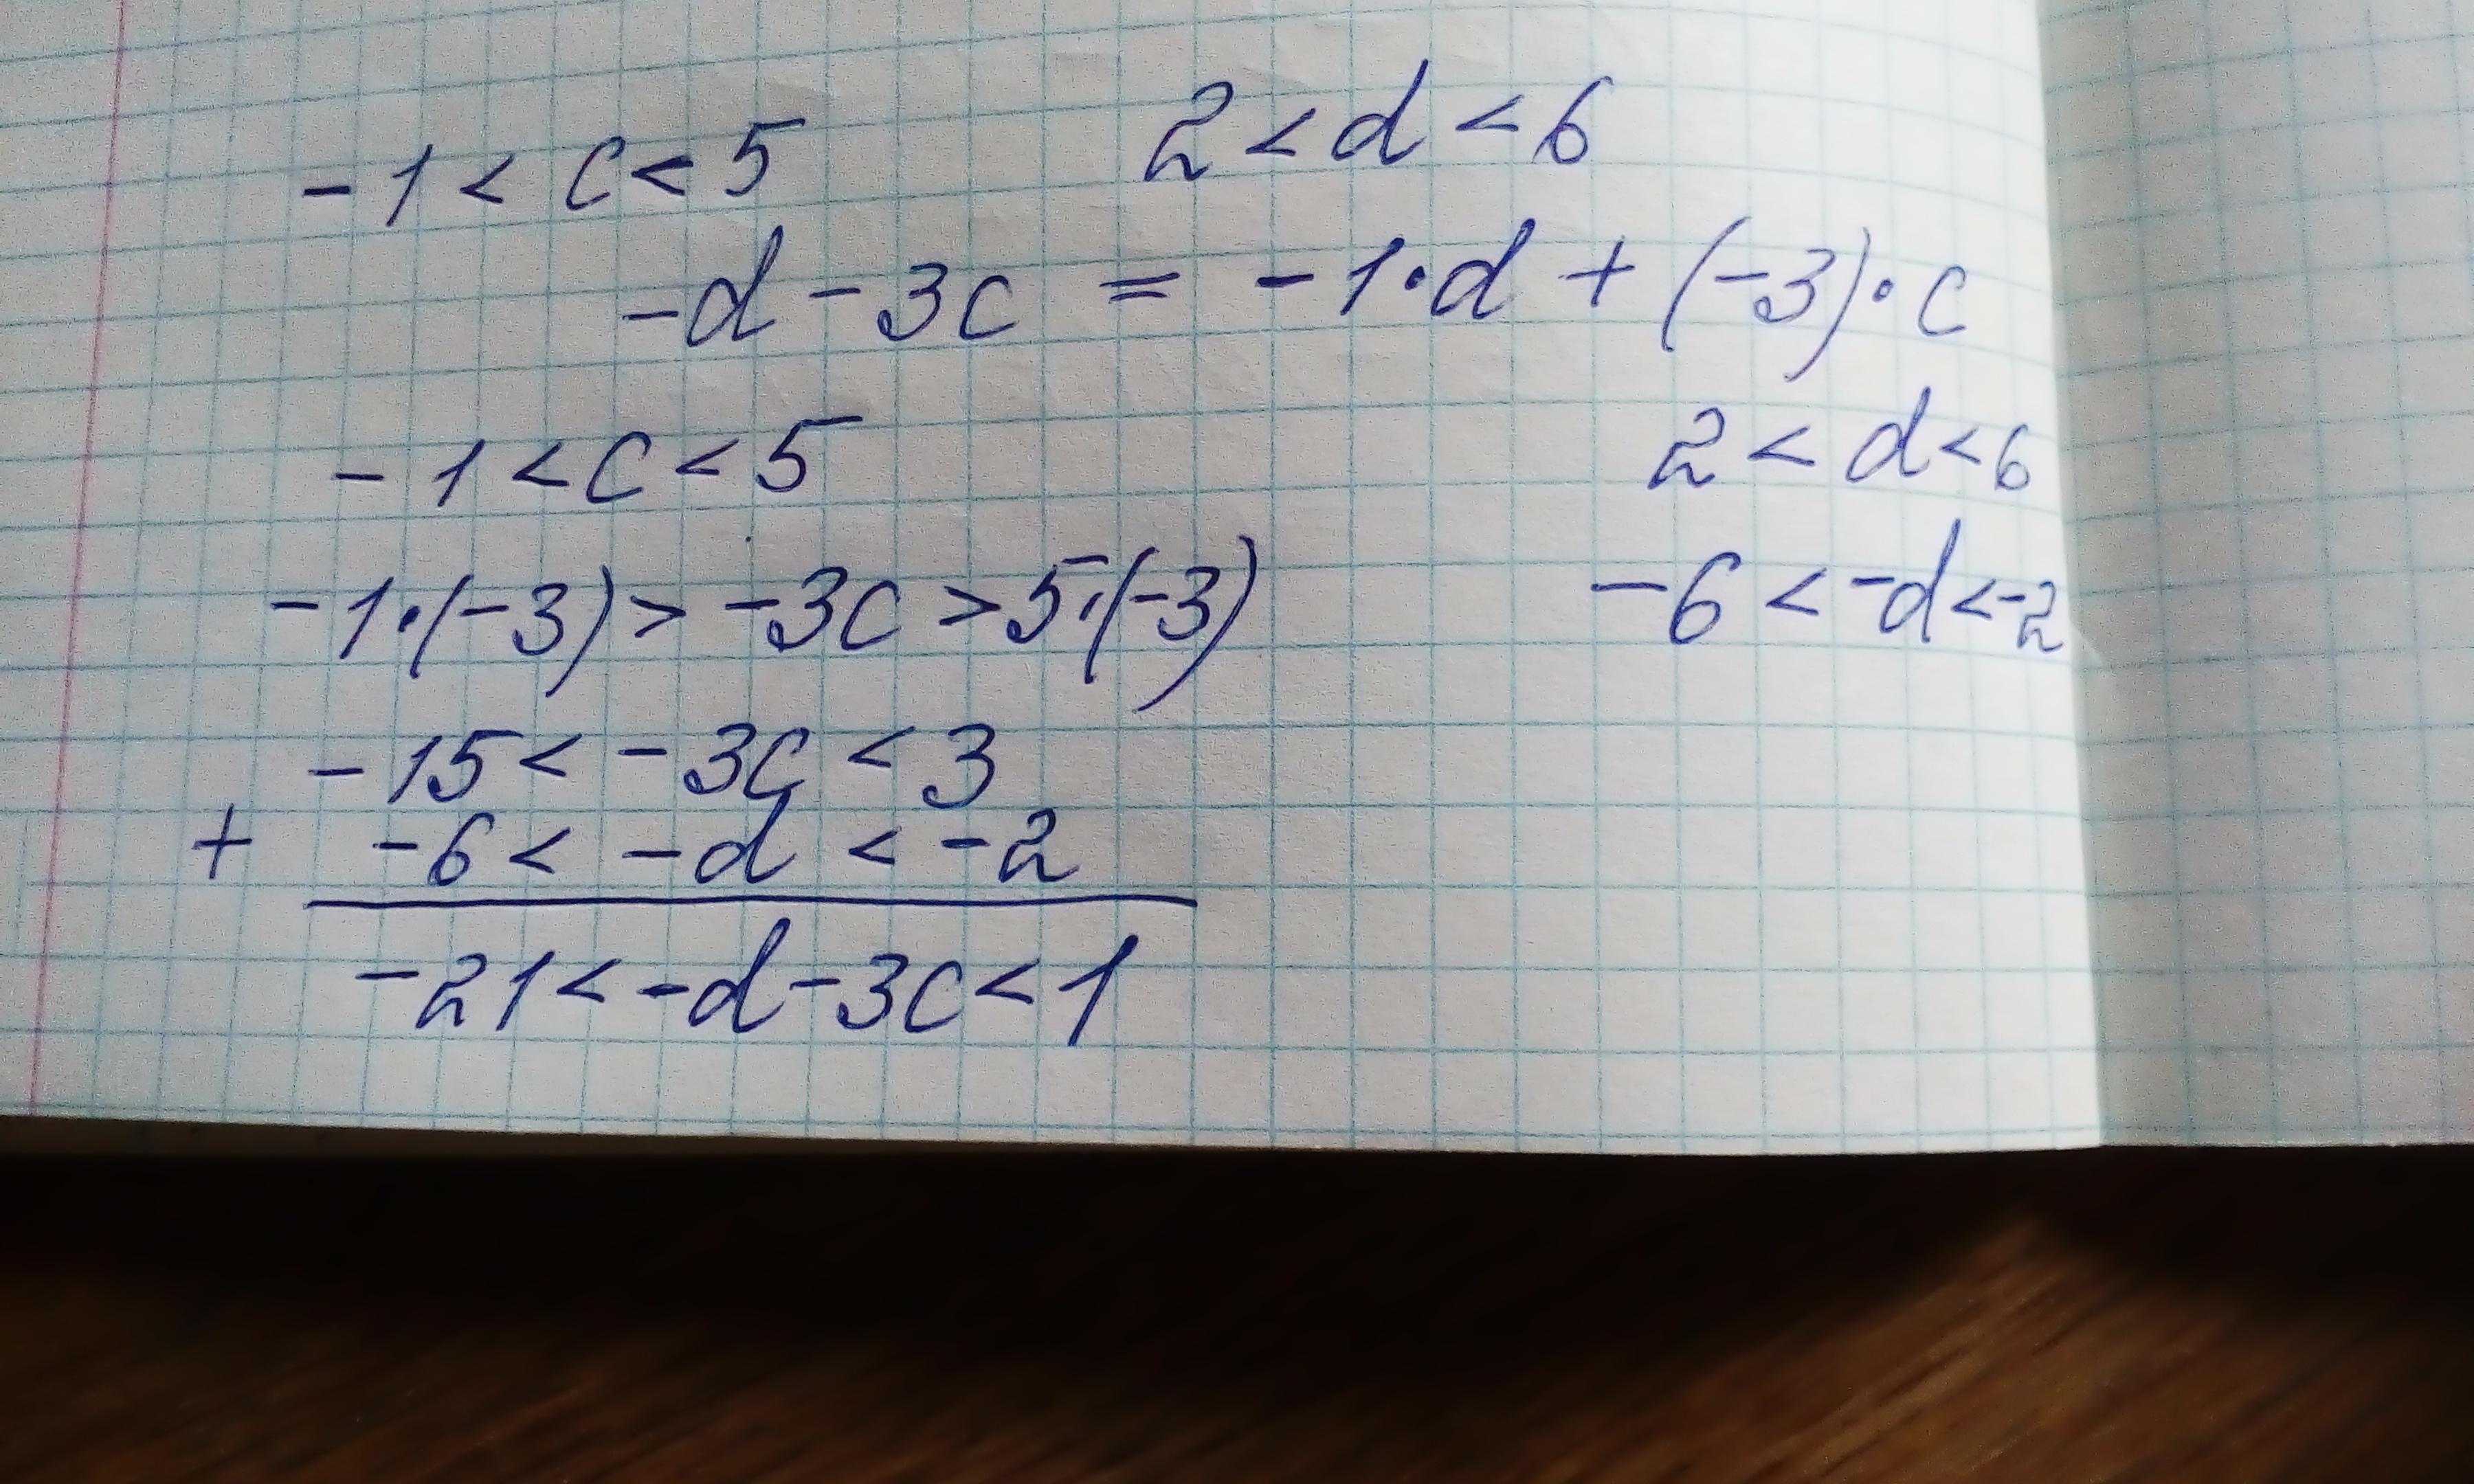 -1 < c < 5 2 < d < 6
-d - 3c = -1·d + (-3)·c
-1 < c < 5 2 < d < 6
-1·(-3) > -3c > 5·(-3) -6 < -d < -2
-15 < -3c < 3
+ -6 < -d < -2
-21 < -d - 3c < 1